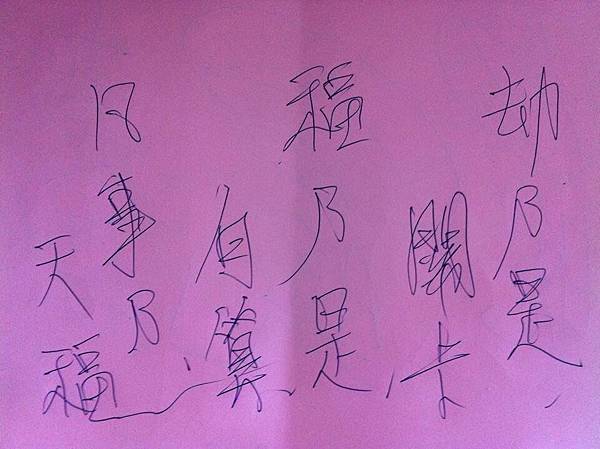 劫乃是
關卡
福乃是
自算
凡事乃
天福